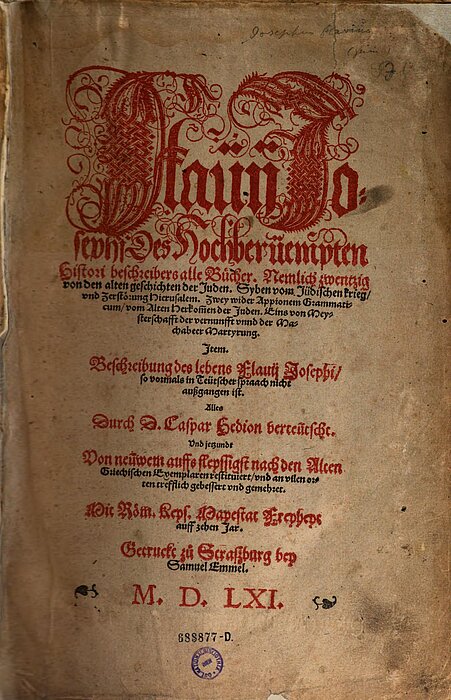 Josephus Flavius
Flauij Jo-
sephi Des Hochberüempten
Histori beschreibers alle Bücher. Nemlich zwentzig
von den alten geschichten der Juden. Syben vom Jüdischen krieg/
vnd Zerstörung Hierusalem. Zwey wider Appionem Grammati-
cum/ vom Alten Herkom̃en der Juden. Eins von Mey-
sterschafft der vernunfft vnnd der Ma-
chabeer Martyrung.
Item.
Beschreibung des lebens Flauij Josephi/
so vormals in Teütscher spraach nicht
außgangen ist.
Alles
Durch D. Caspar Hedion verteütscht.
Vnd jetzundt
Von neüwem auffs fleyssigst nach den Alten
Griechischen Exemplaren restituiert/ vnd an vilen or-
ten trefflich gebessert vnd gemehret.
Mit Röm. Keys. Mayestat Freyheyt
auff zehen Jar.
Getruckt zů Straßburg bey
Samuel Emmel.
M. D. LXI.
688877-D.